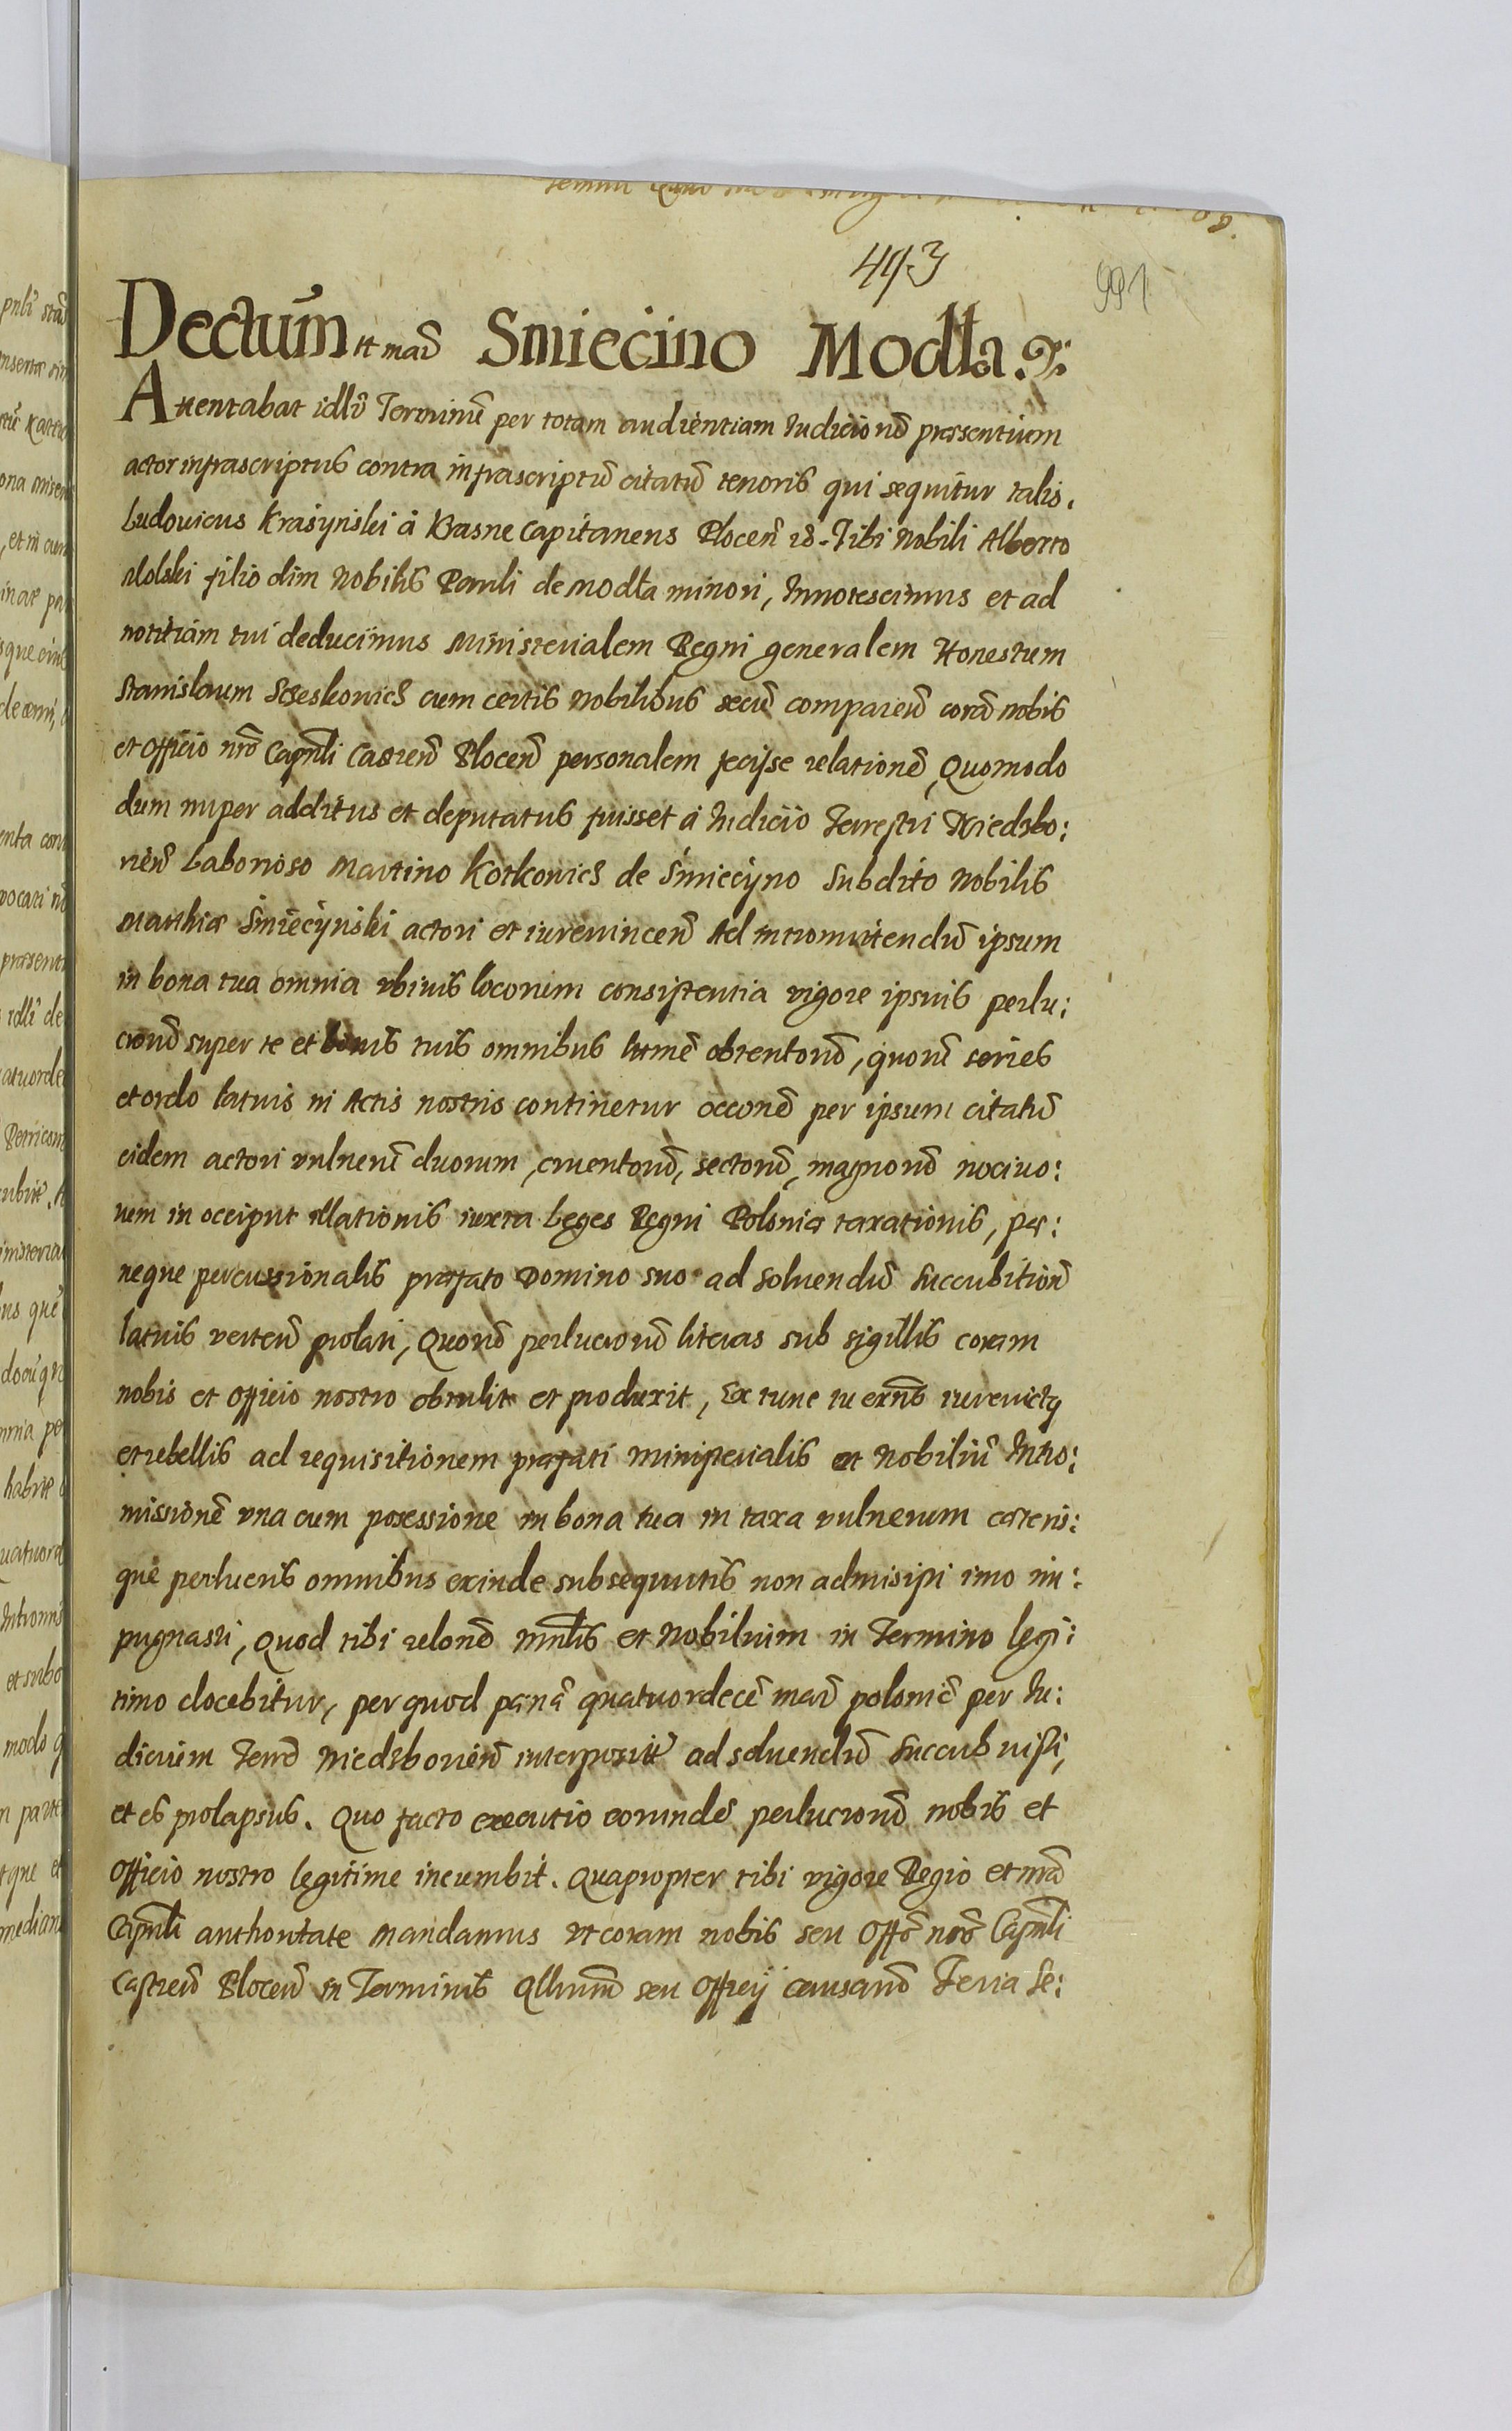 493
991
Dectum̃ et mar̃ Smiecino Modła.
Attentabat idllr̃ Terminũ per totam audientiam Iudicionũ præsentium
actor infrascriptus contra infrascriptũ citatũ tenoris qui sequitur talis.
Ludouicus Krasynski à Krasne Capitaneus Plocen̄ Tibi Nobili Alberto
Molski filio olim Nobilis Pauli de Modła minori, Innotescimus et ad
notitiam tui deducimus Ministerialem Regni generalem Honestum
Stanislaum cum certis Nobilibus secũ comparen̄ corã nobis
et Officio nr̃o Capnl̃i Castren̄ Plocen̄ personalem fecisse relationẽ, Quomodo
dum nuper additus et deputatus fuisset à Iudicio Terrestri Niedzbo:
rien̄ Laborioso Martino Kotkowicz de Smiecyno Subdito Nobilis
Matthiæ Smiecynski actori et iureuincen̄ Ad intromittendũ ipsum
in bona tua omnia vbiuis locorum consistentia vigore ipsius perlu:
cronũ super te et bonis tuis omnibus obtentorũ, quorũ series
et ordo latius in Actis nostris continetur occonẽ per ipsum citatũ
eidem actori vulnerũ duorum, cruentorũ, sectorũ, magnorũ nociuo:
rum in occiput illationis iuxta Leges Regni Poloniæ taxationis, pæ:
neque percussionalis præfato Domino suo ad soluendũ succubition̄
latius verten̄ prolati, Quorũ perlucrorũ literas sub sigillis coram
nobis et Officio nostro obtulit et produxit, Ex tunc tu exñs iureuictus
et rebellis ad requisitionem præfati ministerialis et Nobiliũ Intro:
missionẽ vna cum possessione in bona tua in taxa vulnerum cæteris:
què perlucris omnibus exinde subsequutis non admisisti imo im:
pugnasti, Quod tibi relonẽ mnl̃is et Nobilium in Termino legi:
timo docebitur, per quod pænã quatuordecẽ mar̃ polonic̃ per Iu:
dicium Terrẽ Niedzborien̄ interposit̃ ad soluendũ succubuisti,
et es prolapsus. Quo facto executio eorundẽ perlucrorũ nobis et
Officio nostro legitime incumbit. Quapropter tibi vigore Regio et nr̃a
Capnl̃i authoritate Mandamus vt coram nobis seu Offõ nr̃o Capnl̃i
Castren̄ Plocen̄ in Terminis qllnum̃ seu Officij causarũ Feria Se: